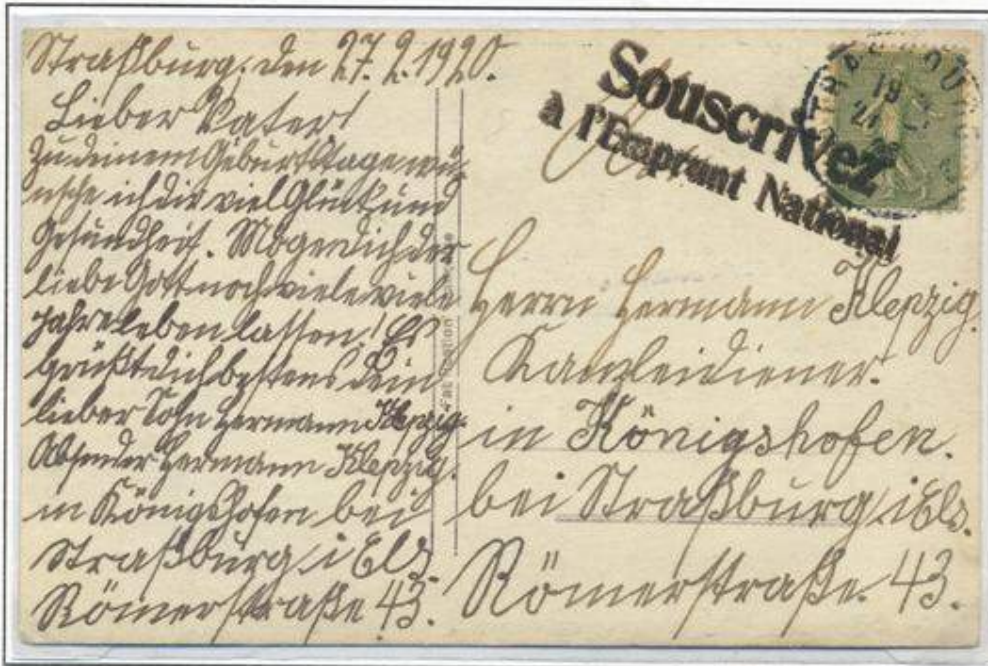 Straßburg, den 27.2.1920.
Lieber Vater!
Zu deinem Geburtstage wü-
nsche ich dir viel Glück und
Gesundheit. Möge dich der
liebe Gott noch viele viele
Jahre leben lassen! Es
grüßt dich bestens dein
lieber Sohn Hermann Klepzig.
Absender Hermann Klepzig.
in Königshofen bei
Straßburg i Els.
Römerstraße 43.
Souscrivez
à l'Emprunt National
Herrn Hermann Klepzig.
Kanzleidiener.
in Königshofen.
bei Straßburg i Els.
Römerstraße 43.